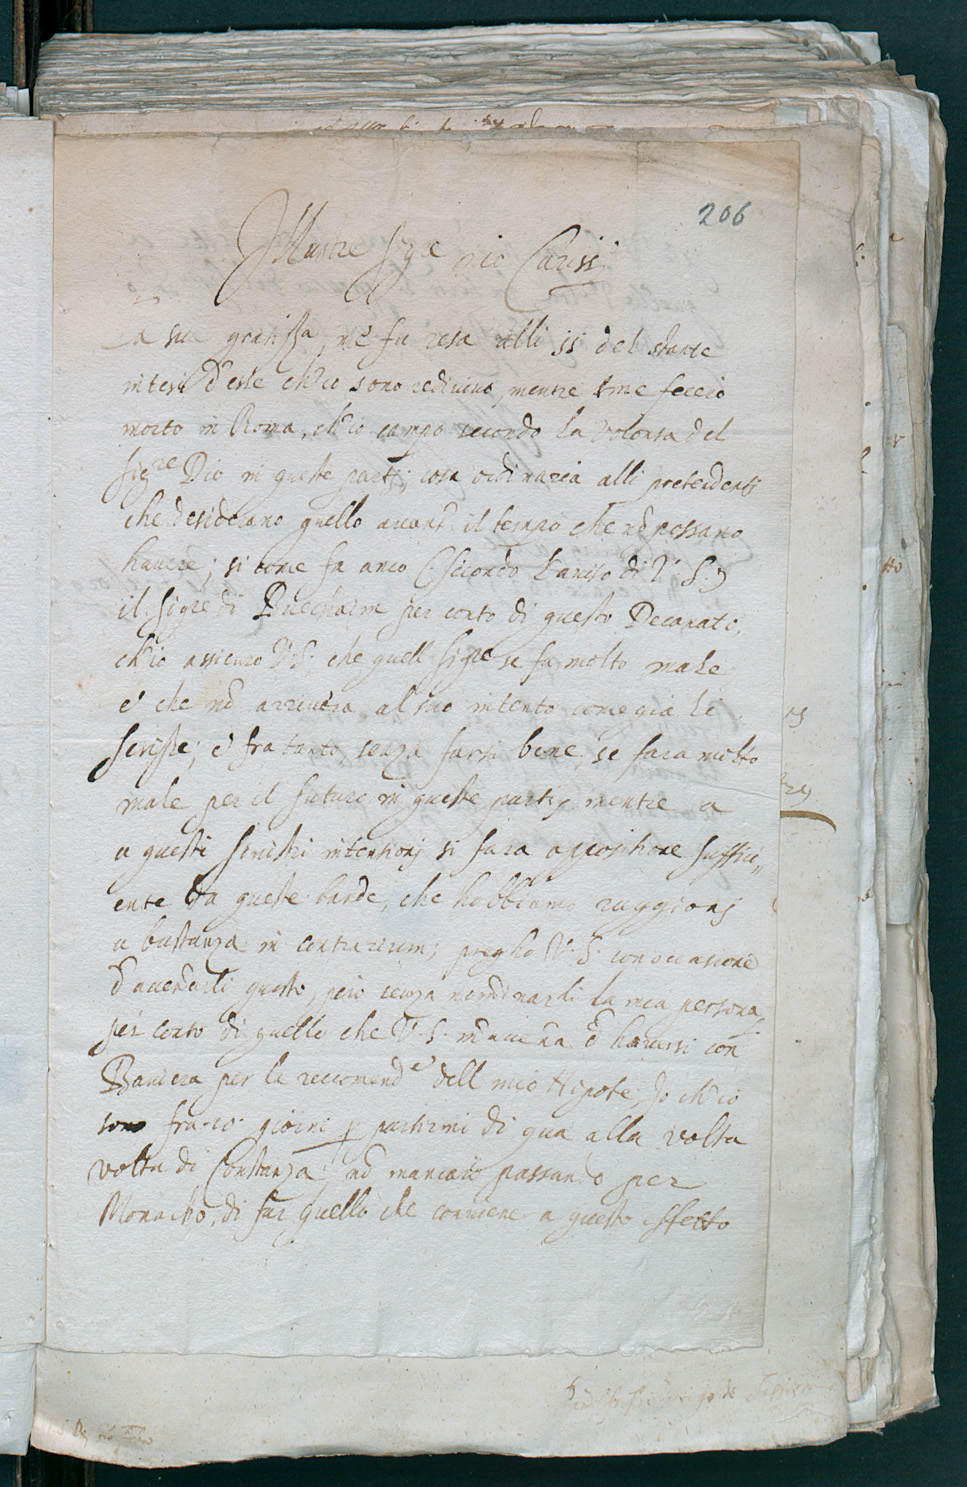 206
Illustre Sig.re mio Cariss.
La sua gratiss.a mè fu resa alli 15 del stante
intesi d'esse ch'io sono redivivo, mentre me feccio
morto in Roma, ch'io campo secondo la volonta del
Sig.re Dio in queste parti; cosa ordinaria alli pretendenti
che desiderano quello avant il tempo che nõ possano
havere; si come fa anco (secondo l'aviso di V. S.)
il Sig.re di per conto di questo Decanato,
ch'io assicuro V. S. che quell Sig.re se fa molto male
e che nõ arrivera al suo intento come gia li
scrisse; e fra tanto senza farsi bene, se fara molto
male per il futuro in queste parti, mentre a
a questi sinistri intentioni si fara oppositione suffici
ente da queste bande, che habbiamo raggioni
a bastanza in contrarium; pregho V. S. con occasione
questo, però senza nominarli la mia persona,
per conto di quello che V. S. haversi con
Baviera per la reccomend.e dell mio Nipote, Io ch'io
sono fra 10 giorni p partirmi di qua alla volta
volta di Constanza, nõ mancarò passando per
Monacho, di far quello che conviene a questo effetto